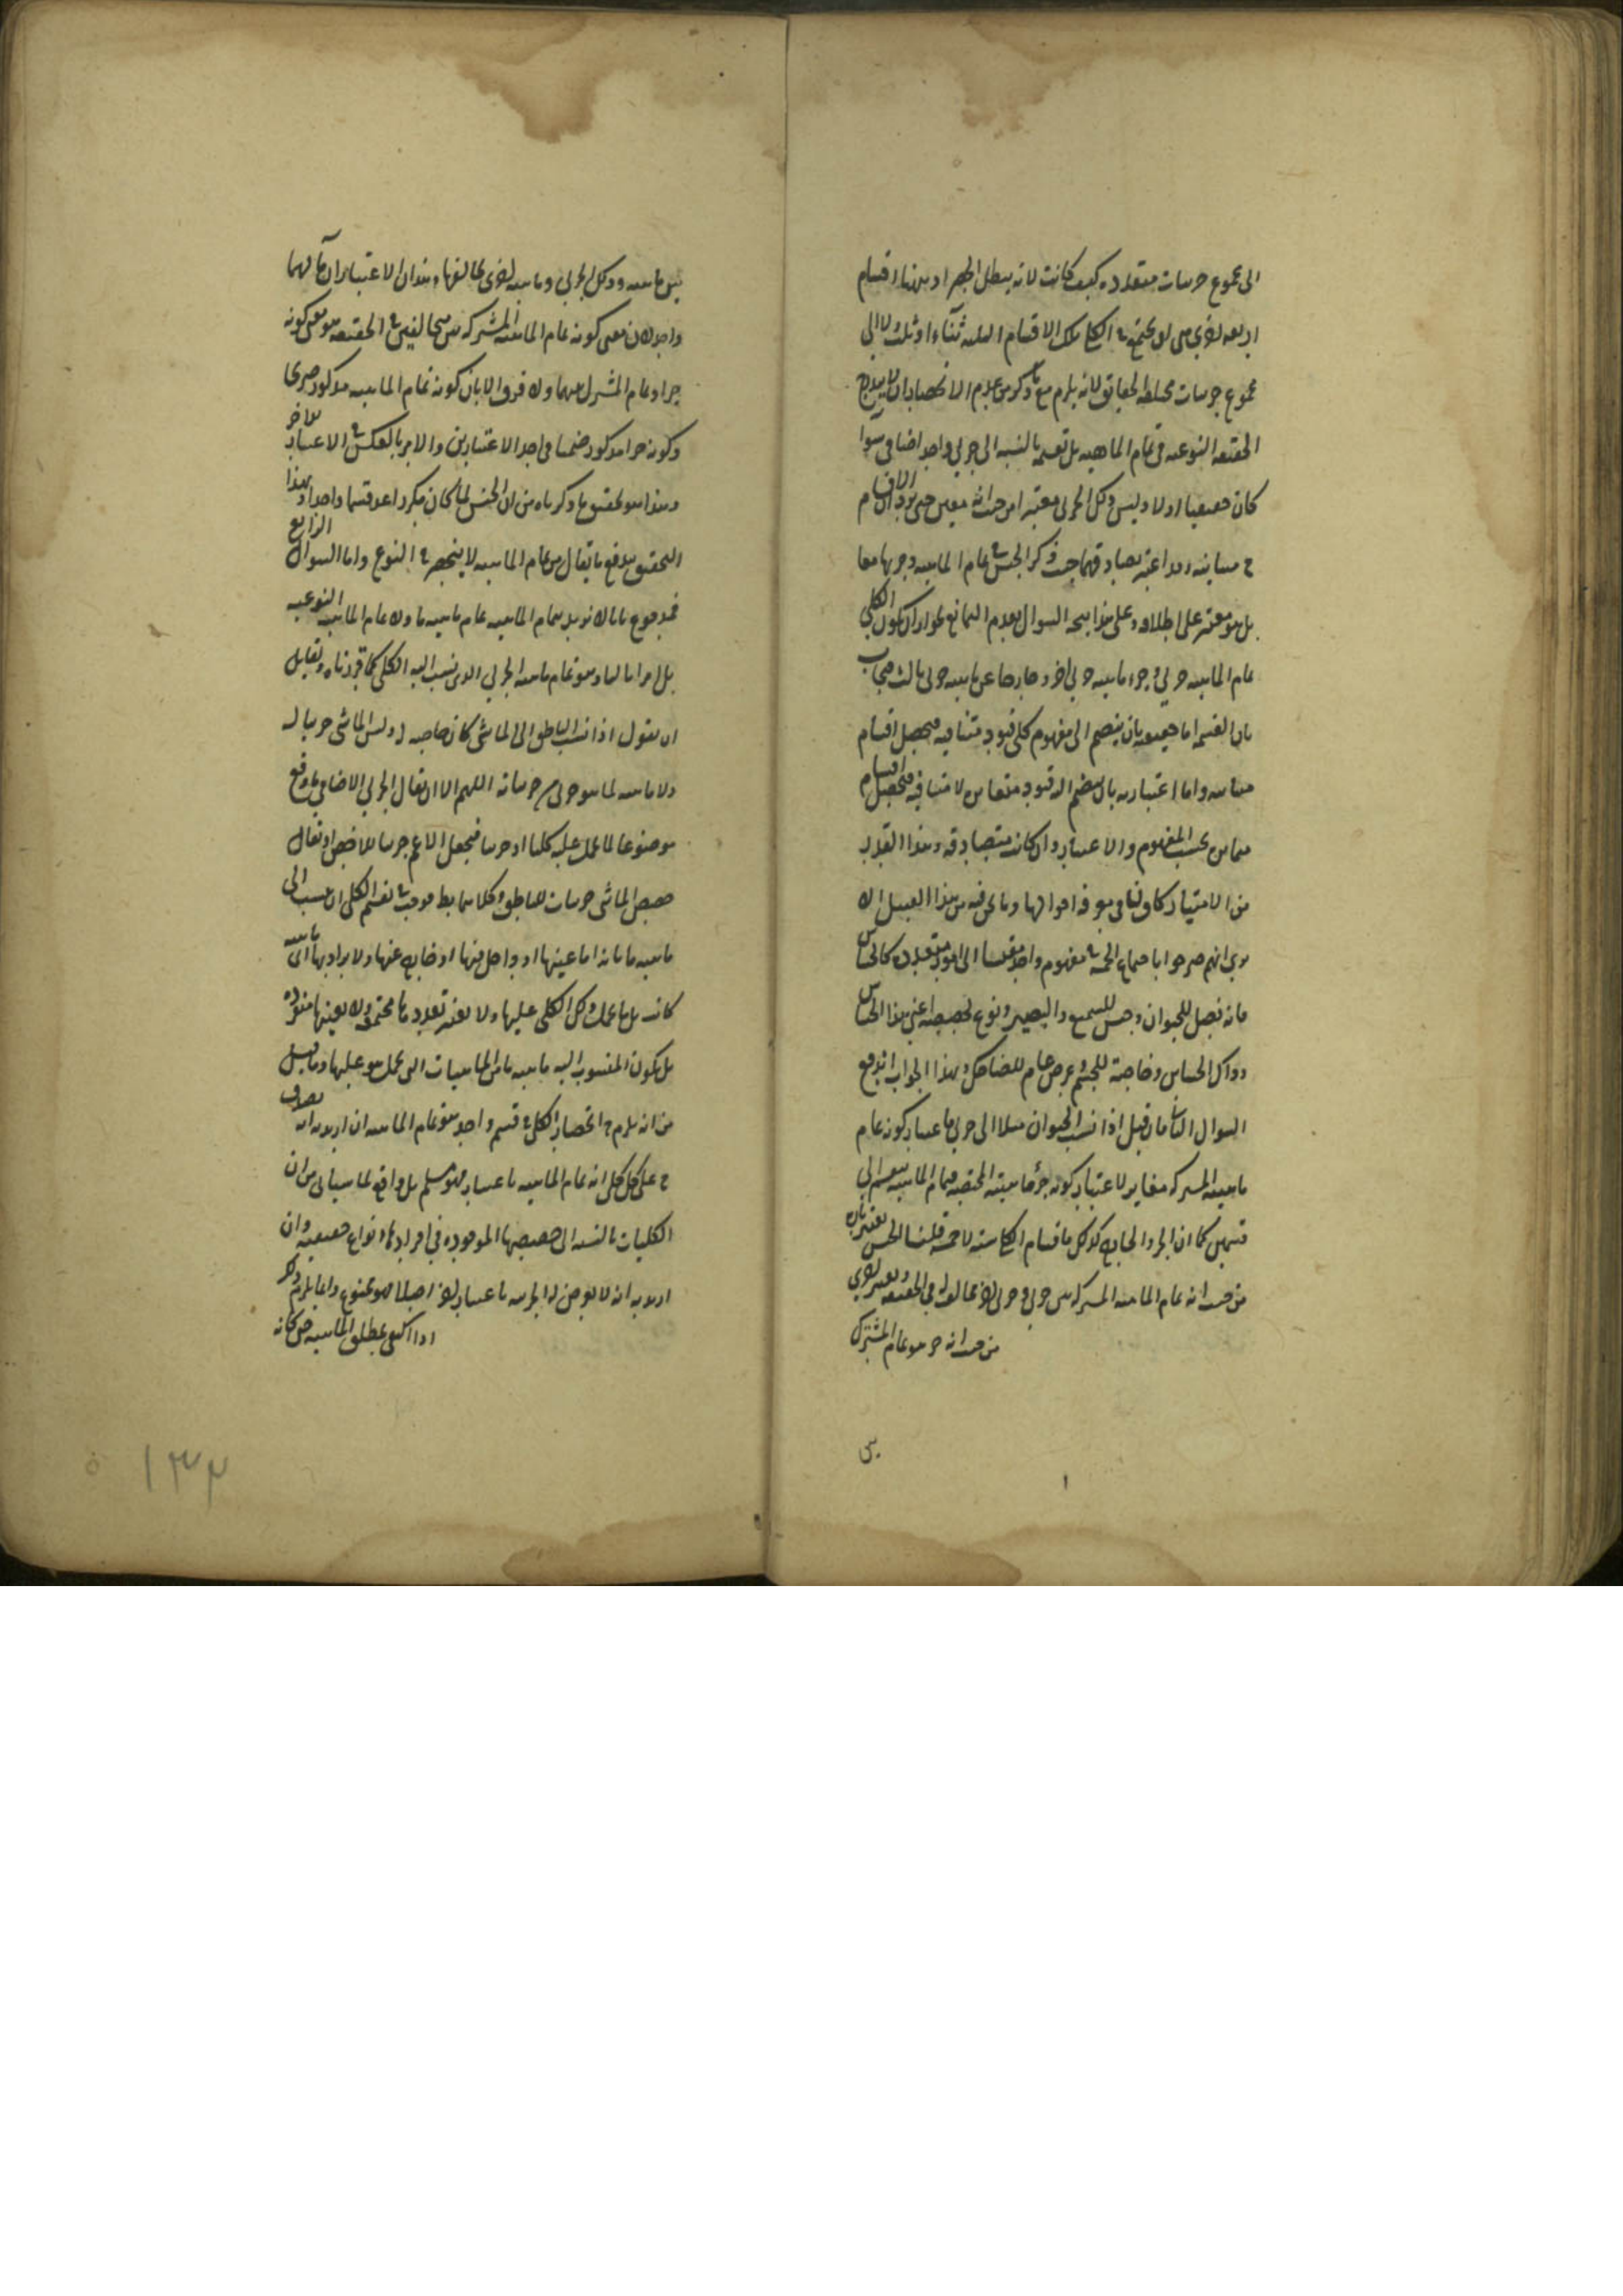 الى مجموع جزئيات متعدده كيف كانت لانه يبطل الحصر اذ ههنا اقسام
اربعه اخرى هى ان يجتمع فى الكلى تلك الاقسام الثلثه ثناء او ثلث ولا الى
مجموع جزئيات مختلطه الحقايق لانه يلزم مع ما ذكر من عدم الانحصار ان لا يندرج
الحقيقه النوعيه فى تمام الماهيه بل نقسمه بالنسبه الى جزئى واحد اضافى سوا
كان حقيقيا او لا وليس ذلك الجزئى معتبرا من حيث انه معين حتى يرد ان الاقسام
ح متباينه وقد اعتبر تصادقها حيث ذكر الجنس فى تمام الماهيه وجزئها معا
بل هو معتبر على اطلاقه وعلى هذا يتجه السوال بعدم التمانع لجواز ان يكون الكلى
تمام الماهيه جزئى وجزء ماهيه جزئى اخر وخارجا عن ماهيه جزئى ثالث فيجاب
بان القسمه اما حقيقيه بان ينضم الى مفهوم كلى قيود متنافيه فيحصل اقسام
متباينه واما اعتباريه بان ينضم اليه قيود متغايره لا متنافيه فتحصل اقسام
متمايزه بحسب المفهوم والاعتبار وان كانت متصادقه وهذا القدر
من الامتياز كاف لنا فى معرفه احوالها وما نحن فيه من هذا القبيل الا
يرى انهم صرحوا باجتماع الخمسه فى مفهوم واحد مقيسا الى امور متعدده كالحساس
فانه فصل للحيوان وجنس للسميع والبصير ونوع لحصصه اعنى هذا الحساس
وذاك الحساس وخاصة للجسم وعرض عام للضاحك وبهذا الجواب اندفع
السوال الثانى بان قيل اذا نسب الحيوان مثلا الى جزئى باعتبار كونه تمام
ماهيته المشتركه مغاير لاعتبار كونه جزء ماهيته المختصه فتمام الماهيه ينقسم الى
قسمين كما ان الجزء والخارج كذلك فاقسام الكلى سته لا خمسه قلنا الجنس يعتبر تاره
من حيث انه تمام الماهيه المشتركه بين جزئى وجزئى اخر مخالف له فى الحقيقه ويعتبر اخرى
من حيث انه جزء هو تمام المشترك
بين
بين ماهيه ذلك الجزئى وماهيه اخرى تخالفها وهذان الاعتباران مآلهما
واحد لان معنى كونه تمام الماهيه المشتركه بين متخالفين فى الحقيقه هو معنى كونه
جزاء تمام المشترك بينهما ولا فرق الا بان كونه تمام الماهيه مذكور صريحا
وكونه جزا مذكور ضمنا فى احد الاعتبارين والامر بالعكس فى الاعتبار الاخر
وهذا هو تحقيق ما ذكرناه من ان الجنس لما كان مكررا عد قسما واحدا وبهذا
التحقيق يندفع ما يقال من ان تمام الماهيه لا ينحصر فى النوع واما السوال الرابع
فمدفوع بانا لا نريد بتمام الماهيه تمام ماهيه ما ولا تمام الماهيه النوعيه
بل امرا ثالثا وهو تمام ماهيه الجزئى الذى نسب اليه الكلى كما قررناه ولقايل
ان يقول اذا نسب الناطق الى الماشى كان خاصه له وليس الماشى جزئيا له
ولا ماهيه لما هو جزئى من جزئياته اللهم الا ان يقال الجزئى الاضافى ما وقع
موضوعا لما يحمل عليه كليا او جزئيا فيجعل الاعم جزئيا للاخص او يقال
حصص الماشى جزئيات للناطق وكلاهما بط فوجب فى تقسيم الكلى ان ينسب الى
ماهيه ما بانه اما عينها او داخل فيها او خارج عنها ولا يراد بها اى ماهيه
كانت بل ما يحمل ذلك الكلى عليها ولا يعتبر تعدد ما مجتمعه ولا بعينها منفرده
بل يكون المنسوب اليه ماهيه ما من الماهيات التى يحمل هو عليها وما قيل
من انه يلزم ح انحصار الكلى فى قسم واحد هو تمام الماهيه ان اريد به انه يصدق
ح على كل كلى انه تمام الماهيه باعتبار فهو مسلم بل واقع لما سياتى من ان
الكليات بالنسبه الى حصصها الموجوده فى افرادها انواع حقيقيه وان
اريد به انه لا يعرض له الجزئيه باعتبار اخر اصلا فهو ممنوع وانما يلزم ذلك
اذا اكتفى بمطلق الماهيه حتى كانه
١٣٣